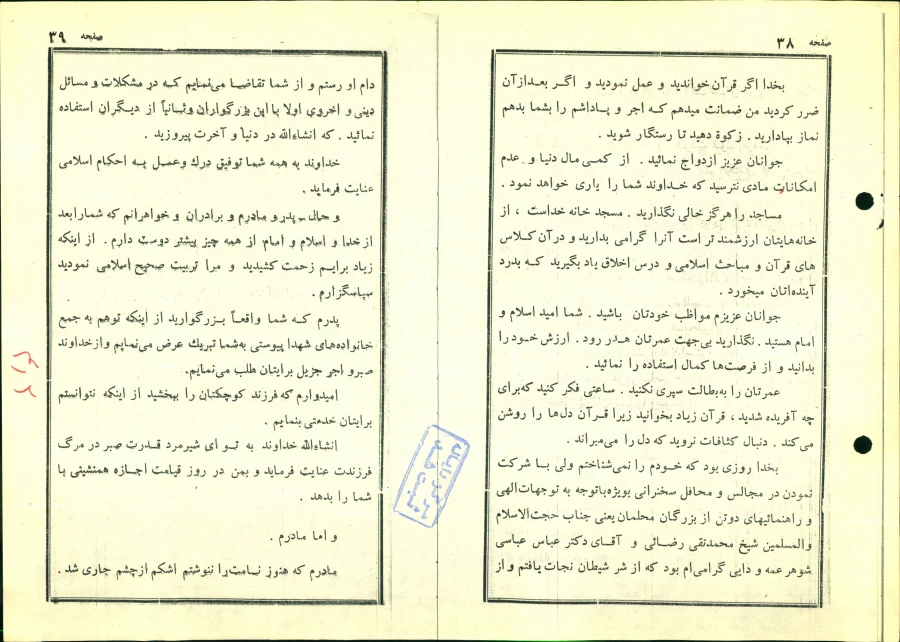 صفحه ۳۸
بخدا اگر قرآن خواندید و عمل نمودید و اگر بعد از آن
ضرر کردید من ضمانت میدهم که اجر و پاداشم را بشما بدهم
نماز بپادارید . زکوة دهید تا رستگار شوید .
جوانان عزیز ازدواج نمائید . از کمی مال دنیا و عدم
امکانات مادی نترسید که خداوند شما را یاری خواهد نمود .
مساجد را هرگز خالی نگذارید . مسجد خانه خداست ، از
خانه‌هایتان ارزشمند تر است آنرا گرامی بدارید و در آن کلاس
های قرآن و مباحث اسلامی و درس اخلاق یاد بگیرید که بدرد
آینده‌اتان میخورد .
جوانان عزیزم مواظب خودتان باشید . شما امید اسلام و
امام هستید . نگذارید بی‌جهت عمرتان هدر رود . ارزش خود را
بدانید و از فرصت‌ها کمال استفاده را نمائید .
عمرتان را به‌بطالت سپری نکنید . ساعتی فکر کنید که برای
چه آفریده شدید ، قرآن زیاد بخوانید زیرا قرآن دل‌ها را روشن
می‌کند . دنبال کثافات نروید که دل را می‌براند .
بخدا روزی بود که خودم را نمی‌شناختم ولی با شرکت
نمودن در مجالس و محافل سخنرانی بویژه باتوجه به توجهات الهی
و راهنمائیهای دوتن از بزرگان محلمان یعنی جناب حجت‌الاسلام
والمسلمین شیخ محمدتقی رضائی و آقای دکتر عباس عباسی
شوهر عمه و دایی گرامی‌ام بود که از شر شیطان نجات یافتم و از
صفحه ۳۹
دام او رستم و از شما تقاضا می‌نمایم که در مشکلات و مسائل
دینی و اخروی اولا با این بزرگواران و ثانیاً از دیگران استفاده
نمائید . که انشاءالله در دنیا و آخرت پیروزید .
خداوند به همه شما توفیق درك و عمل به احکام اسلامی
عنایت فرماید .
و حال ـ پدر و مادرم و برادران و خواهرانم که شمارا بعد
از خدا و اسلام و امام از همه چیز بیشتر دوست دارم . از اینکه
زیاد برایم زحمت کشیدید و مرا تربیت صحیح اسلامی نمودید
سپاسگزارم .
پدرم که شما واقعاً بزرگوارید از اینکه توهم به جمع
خانواده‌های شهدا پیوستی به‌شما تبریك عرض می‌نمایم و از خداوند
صبر و اجر جزیل برایتان طلب می‌نمایم.
امیدوارم که فرزند کوچکتان را ببخشید از اینکه نتوانستم
برایتان خدمتی بنمایم .
انشاءالله خداوند به تو ای شیرمرد قدرت صبر در مرگ
فرزندت عنایت فرماید و بمن در روز قیامت اجازه همنشینی با
شما را بدهد .
و اما مادرم .
مادرم که هنوز نامت را ننوشتم اشکم از چشم جاری شد .